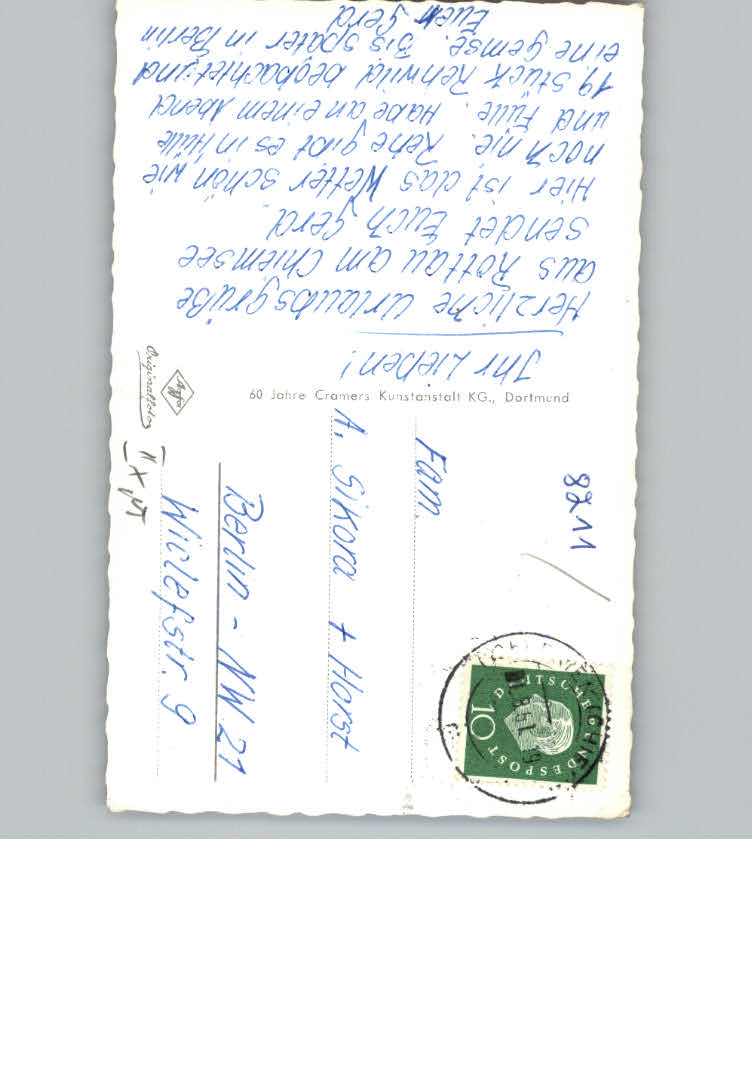 Ihr Lieben!
Herzliche Urlaubsgrüße
aus Rottau am Chiemsee
sendet Euch Gerd
Hier ist das Wetter schön wie
noch nie. Rehe gibt es in Hülle
und Fülle. Habe an einem Abend
19 Stück Rehwild beobachtet und
eine Gemse. Bis später in Berlin
Euer Gerd
60 Jahre Cramers Kunstanstalt KG., Dortmund
Agfa
Originalfoto
8211
DEUTSCHE BUNDESPOST
10
Fam.
A. Sikora + Horst
Berlin - NW 21
Wiclefstr. 9